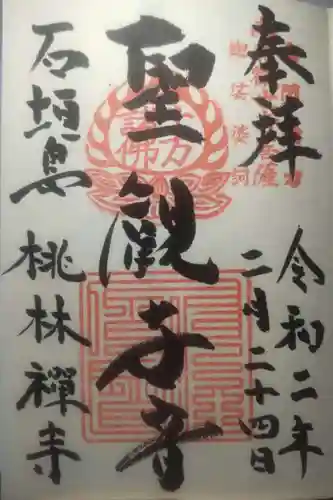 奉拝
令和二年
二月二十四日
聖観世音
石垣島
桃林禪寺